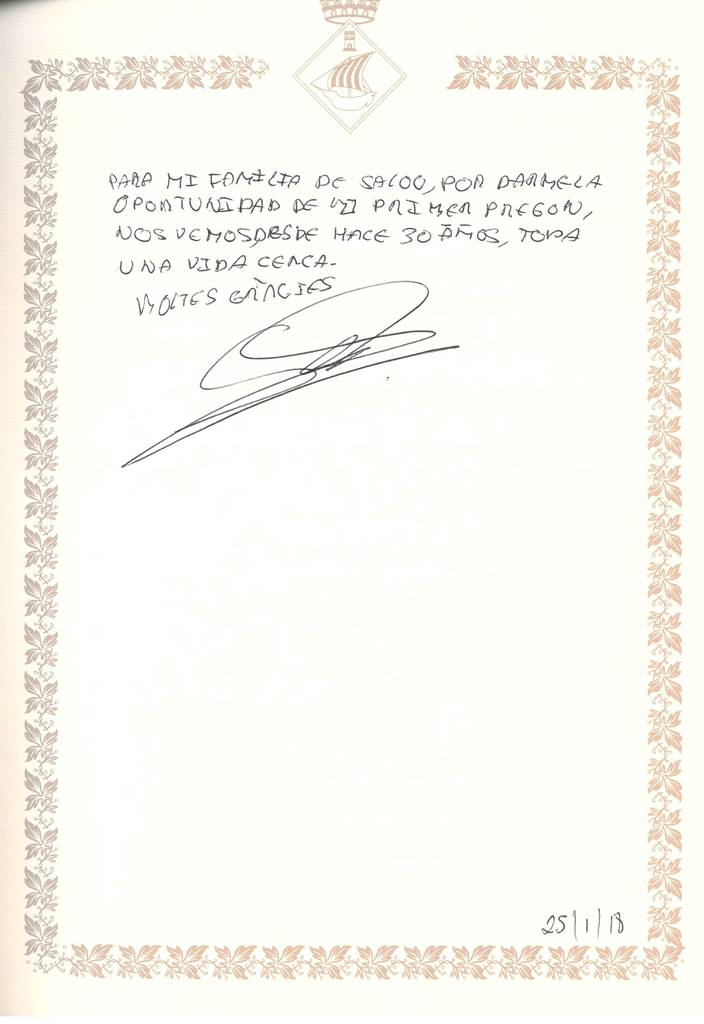 PARA MI FAMÍLIA DE SALOU, POR DARME LA
OPORTUNIDAD DE MI PRIMER PREGON,
NOS VEMOS, DESDE HACE 30 AÑOS, TODA
UNA VIDA CERCA.
MOLTES GRÀCIES
25/1/18